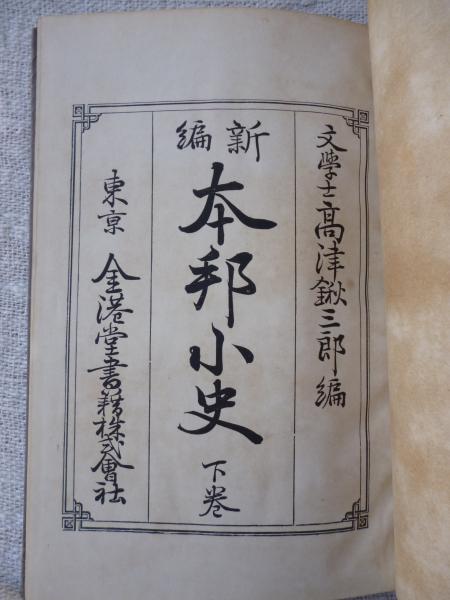 文學士高津鍬三郎編
新編
本邦小史
下巻
東亰
金港堂書籍株式會社